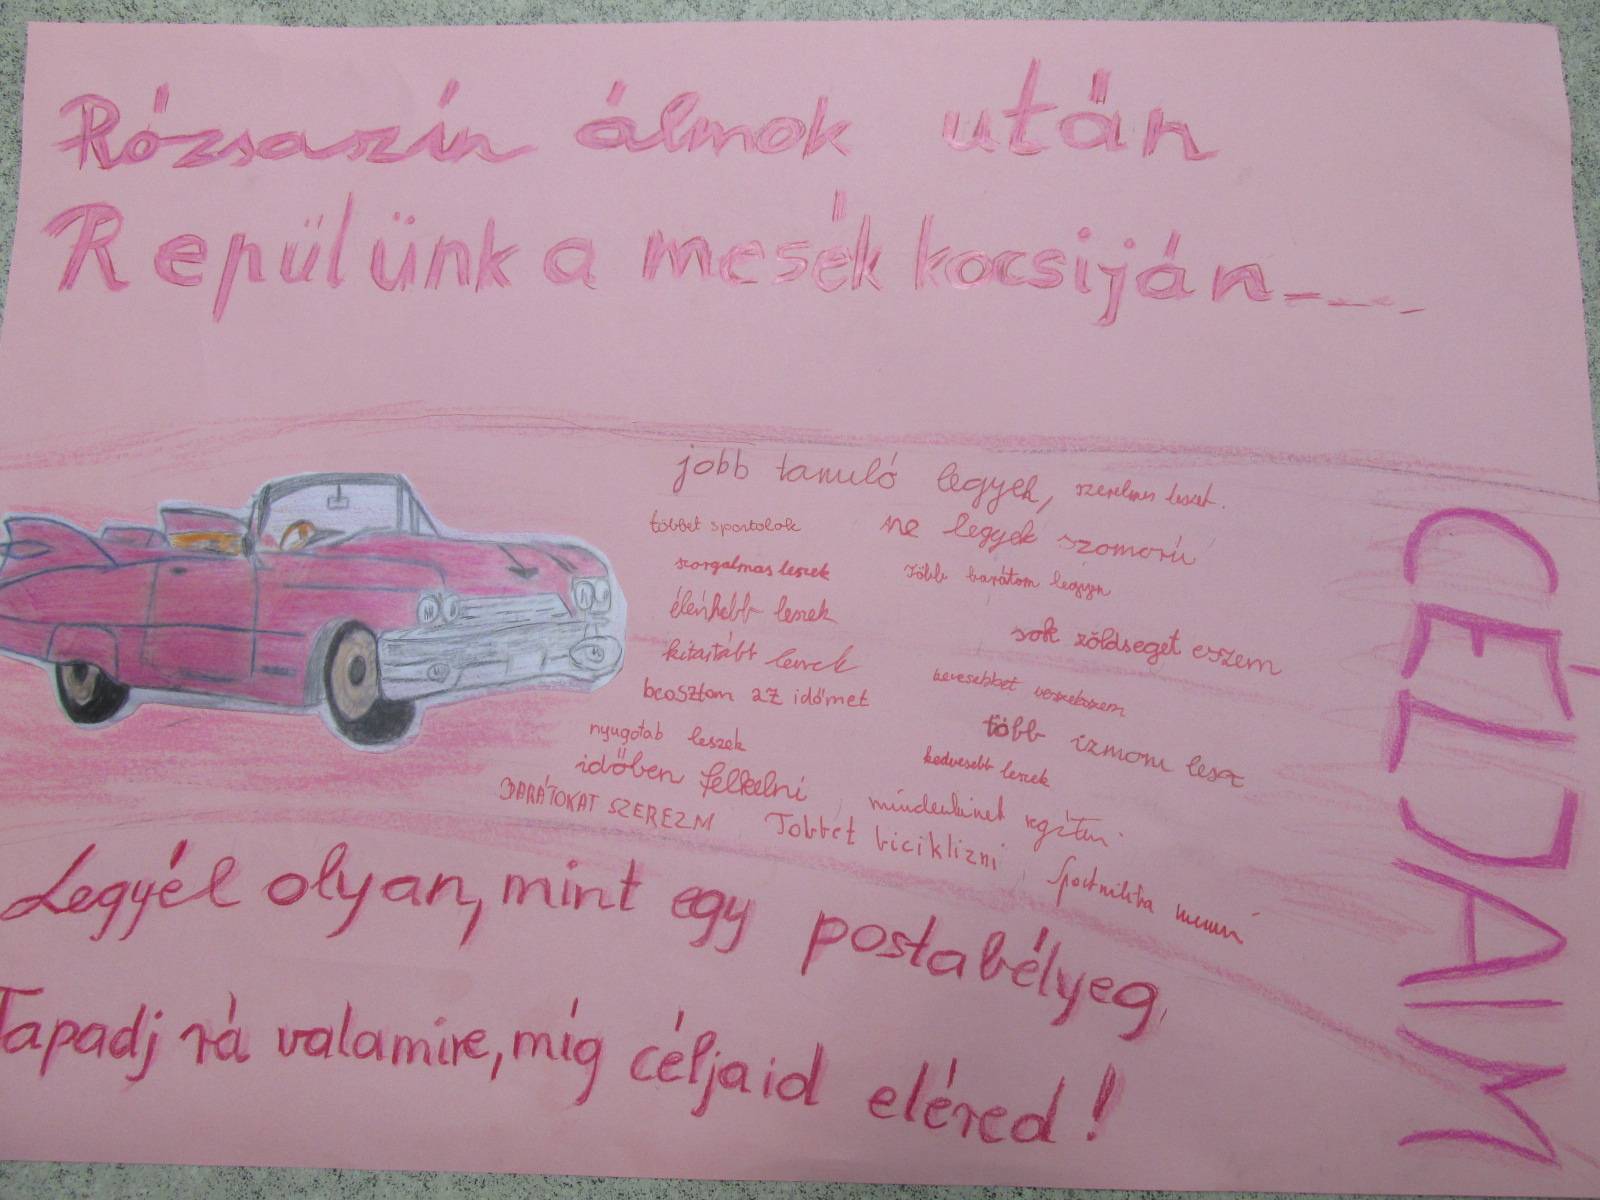 Rózsaszín álmok után
Repülünk a mesék kocsiján----
jobb tanuló legyek, szerelmes leszek.
többet sportolok
ne legyek szomorú
szorgalmas leszek
több barátom legyen
élénkebb leszek
sok zöldséget eszem
kitartább leszek
kevesebbet veszekszem
beosztom az időmet
több izmom lesz
nyugotab leszek
kedvesebb leszek
időben felkelni
mindenkinek segíteni
BARÁTOKAT SZEREZM
Többet biciklizni
CÉLJAIM
Legyél olyan, mint egy postabélyeg,
Tapadj rá valamire, míg céljaid eléred!